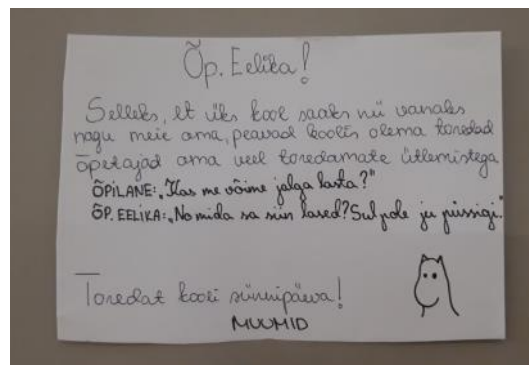 Õp. Eelika!
Selleks, et üks kool saaks nii vanaks
nagu meie oma, peavad koolis olema toredad
õpetajad oma veel toredamate ütlemistega
ÕPILANE: „Kas me võime jalga lasta?"
ÕP. EELIKA: „No mida sa siin lased? Sul pole ju püssigi."
Toredat kooli sünnipäeva!
MUUMID